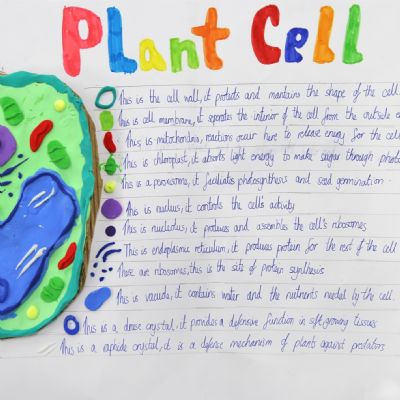 Plant Cell
This is the cell wall, it protects and mantains the shape of the cell
This is cell membrane, it seperates the interior of the cell from the outside
This is mitochondria, reactions occur here to release energy for the cell
This is chloroplast, it absorbs light energy to make sugar through
This is a peroxisome, it faciliates photosynthesis and seed germination.
This is nucleus, it controls the cell's activity
This is nucleolus, it produces and assembles the cell's ribosomes
This is endoplasmic reticulum, it produces protein for the rest of the cell
These are ribosomes, this is the site of protein synthesis
This is vacuole, it contains water and the nutrients needed by the cell.
This is a druse crystal, it provides a defensive function in soft growing tissues
This is a raphide crystal, it is a defense mechanism of plants against predators.